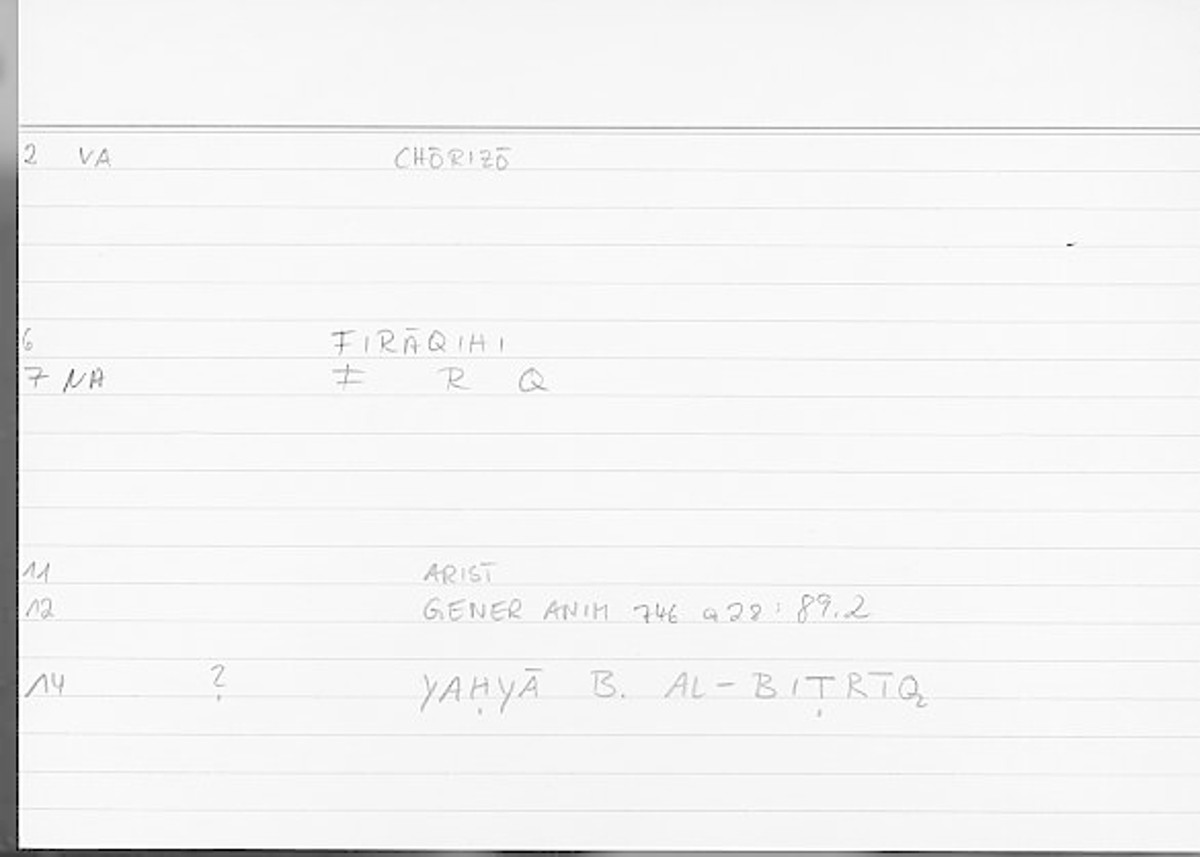 2 VA CHŌRIZŌ
6 FIRĀQIHI
7 NA F R Q
11 ARIST
12 GENER ANIM 746 a28: 89.2
14 ? YAḤYĀ B. AL-BIṬRĪQ